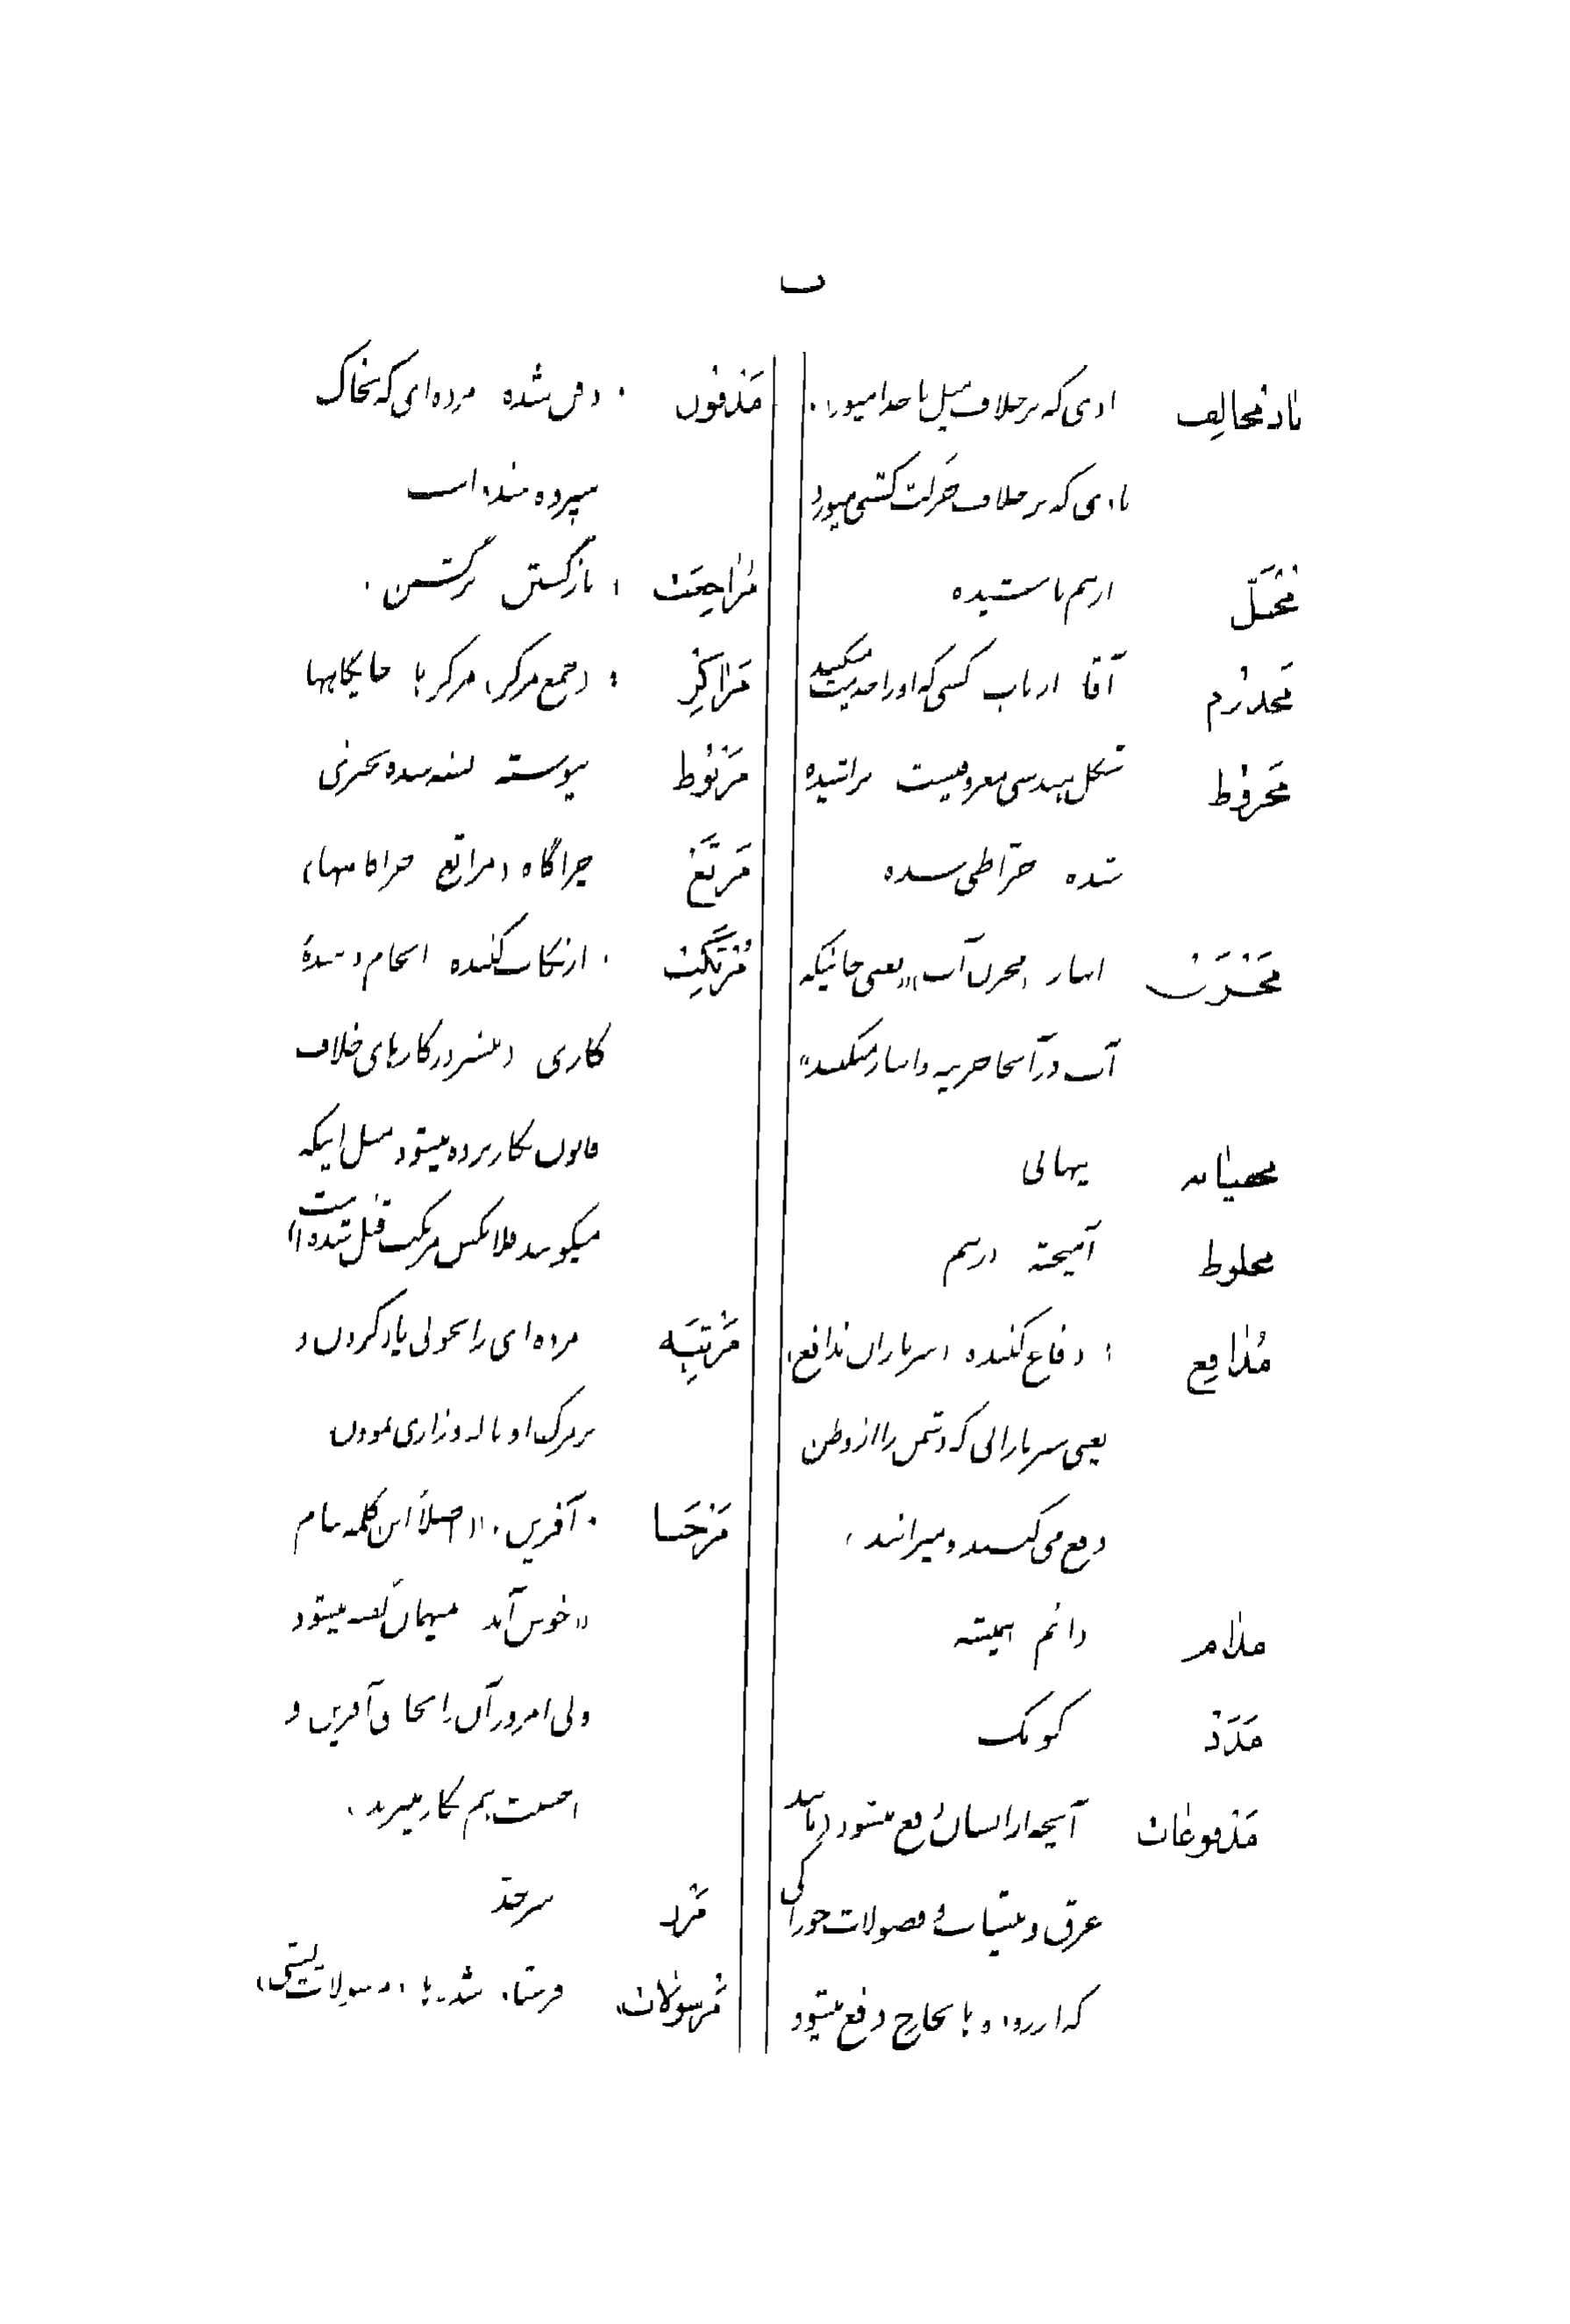 ب
باد مخالف بادی که برخلاف میل ناخدا میوزد.
بادی که برخلاف حرکت کشتی میوزد
مختل از هم پاشیده
مخدوم آقا ارباب کسی که او را خدمت میکنند
مخروط شکل هندسی معروفیست تراشیده
شده خراطی شده
مخزن انبار (مخزن آب) «یعنی جائیکه
آب در آنجا ذخیره و انبار میکنند»
مخفیانه پنهانی
مخلوط آمیخته درهم
مدافع : دفاع کننده (سربازان مدافع)
یعنی سربازانی که دشمن را از وطن
دفع می کنند و میرانند)
مدام دائم همیشه
مدد کومک
مدفوعات آنچه از انسان دفع میشود (مانند
عرق و فضولات خوراکی
که از روده ها بخارج دفع میشود
مدفون : دفن شده مرده ای که بخاک
سپرده شده است
مراجعت : بازگشتن برگشتن.
مراکز : (جمع مرکز) مرکزها جایگاهها
مربوط پیوسته بسته شده بچیزی
مرتع چراگاه (مراتع چراگاهها)
مرتکب : ارتکاب کننده انجام دهندۀ
کاری (بیشتر در کارهای خلاف
قانون بکار برده میشود مثل اینکه
میگویند فلانکس مرتکب قتل شده است)
مرثیه مرده ای را بخوبی یاد کردن و
بر مرگ او ناله و زاری نمودن
مرحبا : آفرین. «(اصلاً این کلمه بنام
«خوش آمد» میهمان گفته میشود
ولی امروز آن را بجای آفرین و
احسنت هم بکار میبرند)
مرز سرحد
مرسولات فرستاده شده ها (مرسولات پستی)